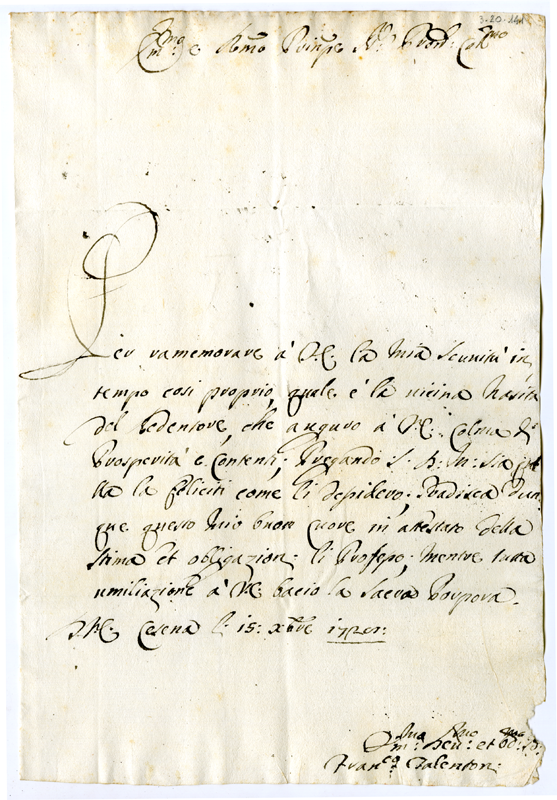 3-20-141
Em.mo e Rmo Prinpe Sr. Pron: Col.mo
Per ramemorare à V.E. la mia Seruitù in
tempo così proprio, quale è la uicina Natiuità
del Redentore, che auguro à V.E. Colma di
Prosperità e Contenti; Pregando S. D. M. sia
lla la feliciti come li desidero; Gradisca dun,
que questo mio buon Cuore in attestato della
stima et obligazion: li Professo; mentre tutta
umiliazione à V.E. bacio la Sacra Porpora.
D.V.E. Cesena li 15: Xbre
Um.o Deu: et
Fran.co Talenton: